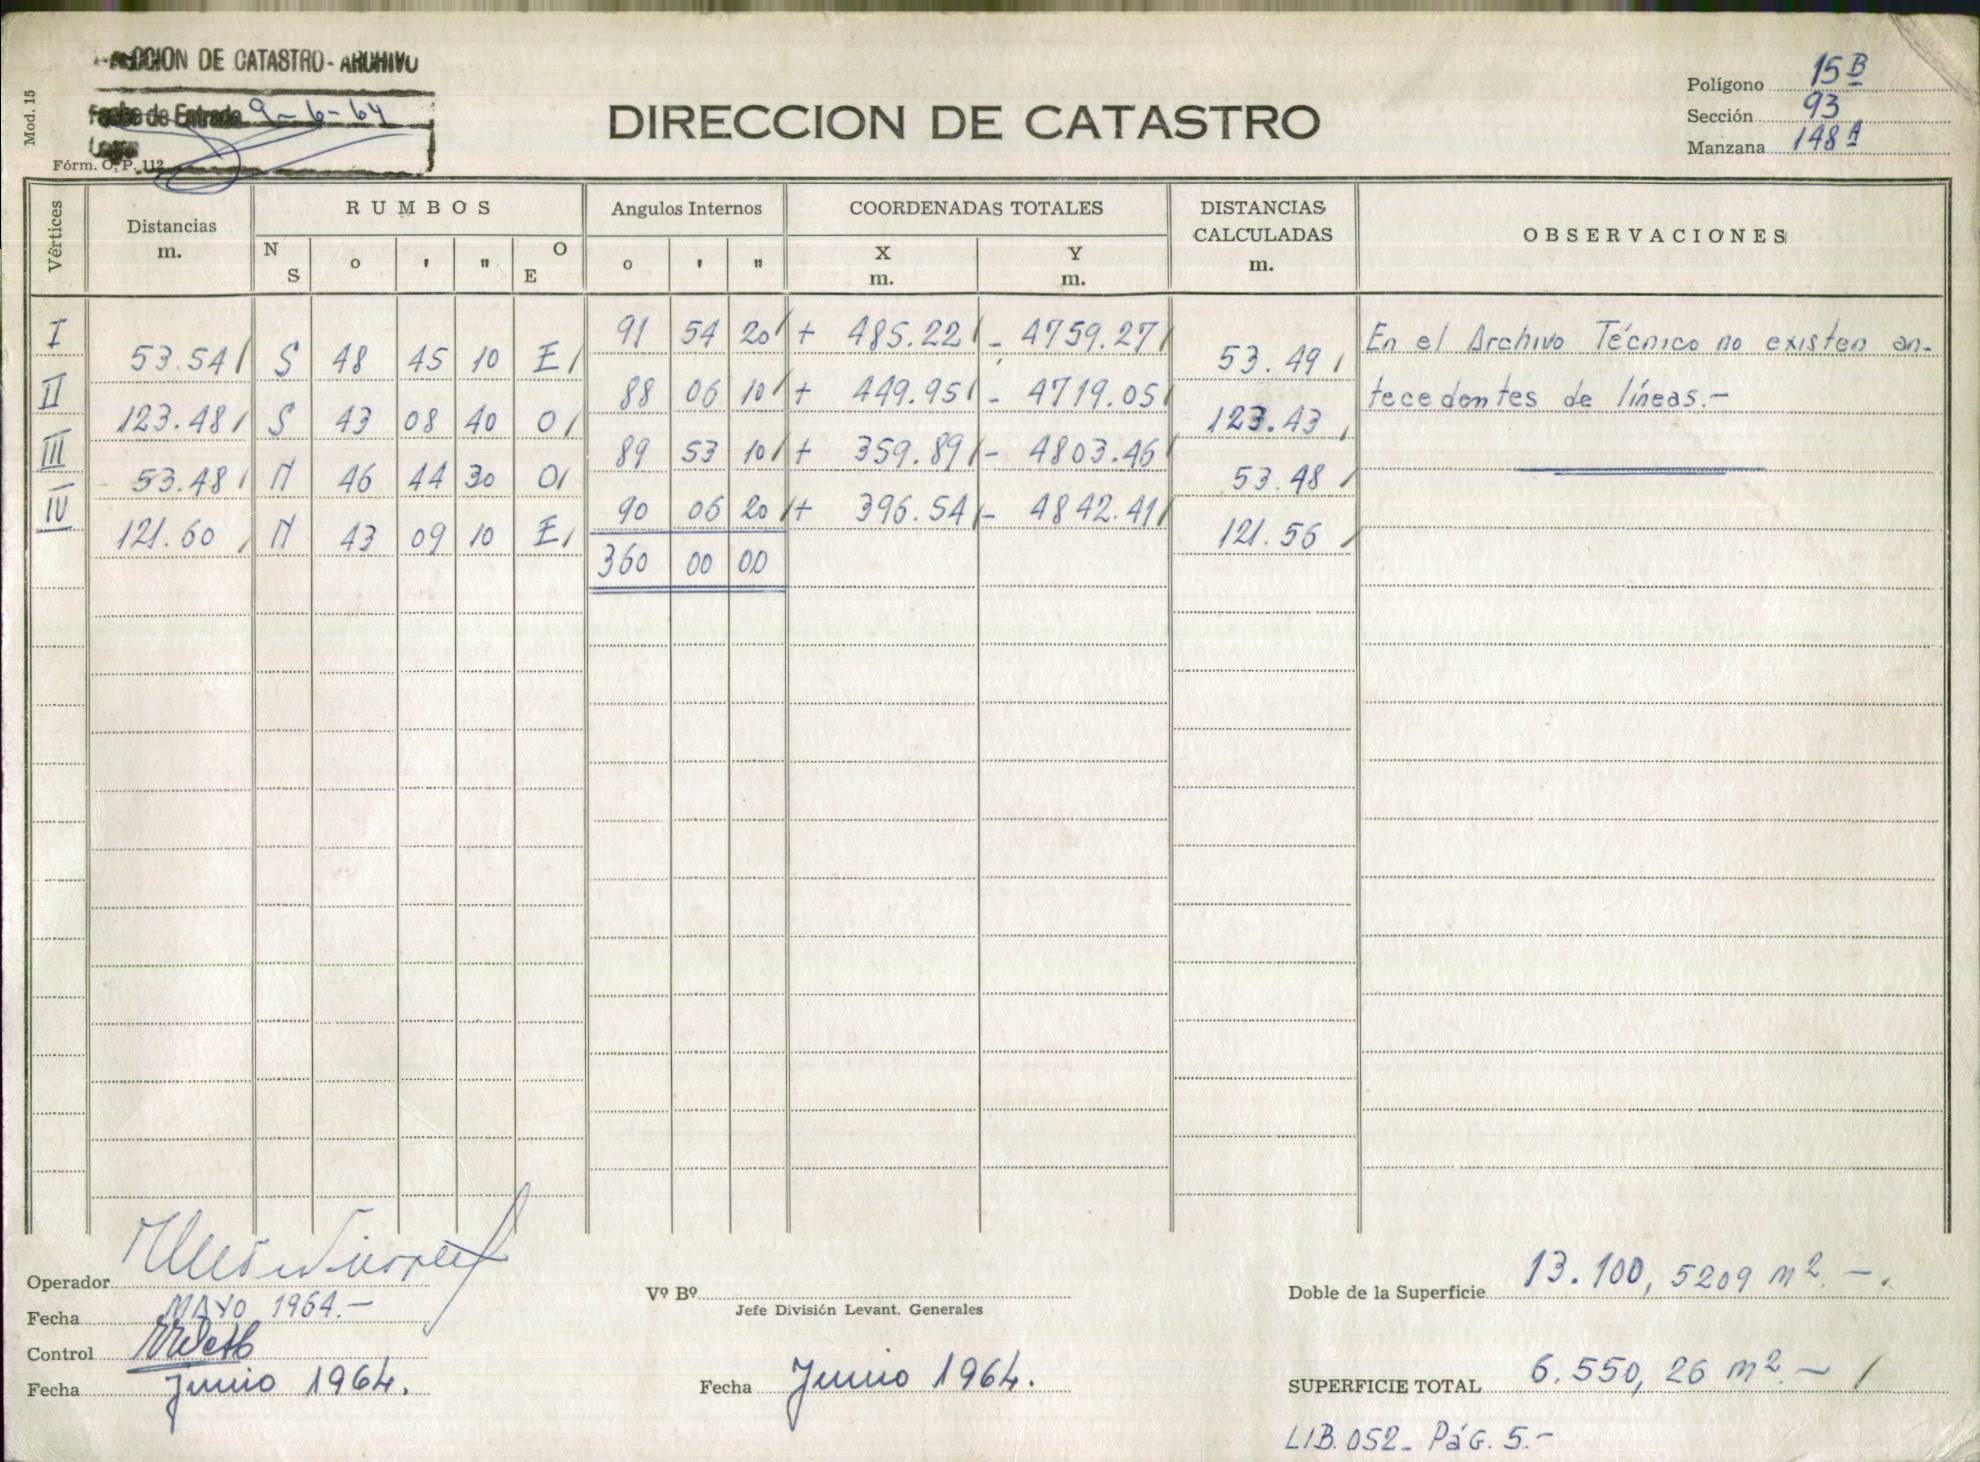 DIRECCION DE CATASTRO - ARCHIVO
Fecha de Entrada 9-6-64
Mod. 15
Fórm. O. P. 112
DIRECCION DE CATASTRO
Polígono 15 B
Sección 93
Manzana 148 A
Vértices
Distancias m.
RUMBOS
N S ° ' " O E
Angulos Internos
° ' "
COORDENADAS TOTALES
X m. Y m.
DISTANCIAS CALCULADAS m.
OBSERVACIONES
I 91 54 20 + 485.22 - 4759.27
53.54 S 48 45 10 E 53.49
II 88 06 10 + 449.95 - 4719.05
123.48 S 43 08 40 O 123.43
III 89 53 10 + 359.89 - 4803.46
53.48 N 46 44 30 O 53.48
IV 90 06 20 + 396.54 - 4842.41
121.60 N 43 09 10 E 121.56
360 00 00
En el Archivo Técnico no existen an-
tecedentes de líneas.-
Operador
Fecha MAYO 1964.-
Control
Fecha Junio 1964.
Vº Bº
Jefe División Levant. Generales
Fecha Junio 1964.
Doble de la Superficie 13.100,5209 m2.-.
SUPERFICIE TOTAL 6.550,26 m2.-
LIB. 052- PáG. 5.-